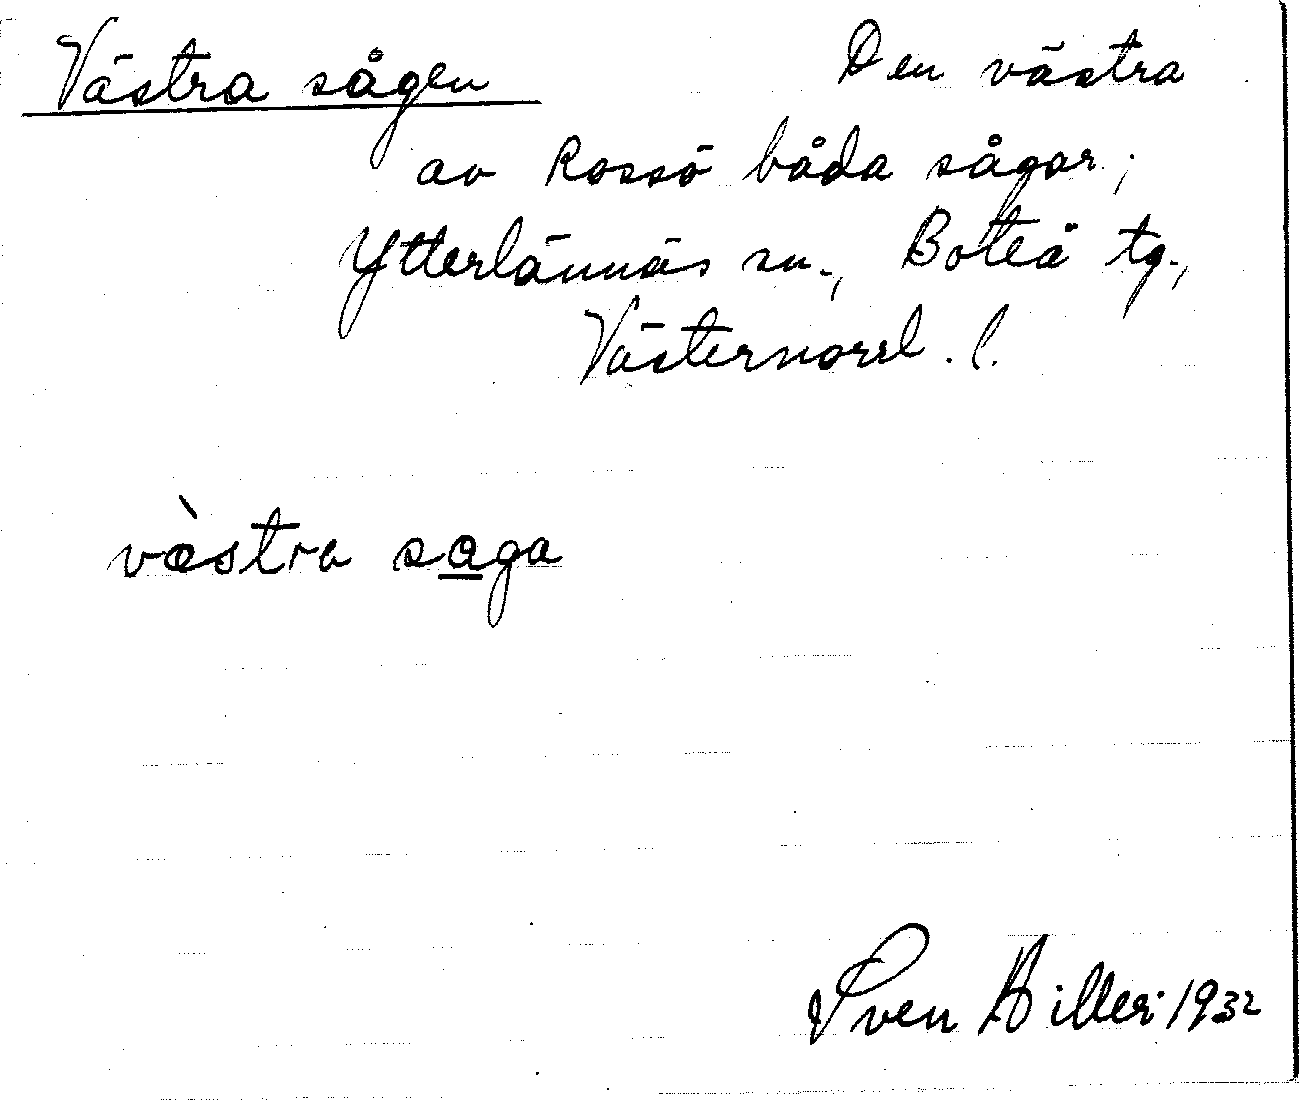 Västra sågen Den västra
av Rossö båda sågar;
Ytterlännäs sn., Boteå tg.,
Västernorrl. l.
vàstra saga
Sven Hillert 1932